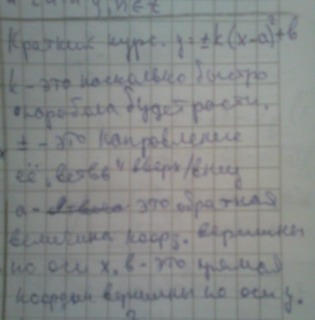 Краткий курс. y=±k(x-a)²+b
k - это насколько быстро
парабола будет расти.
± - это направление
её "ветвь" вверх/вниз
a - это обратная
величина коорд. вершины
по оси x, b - это прямая
координ вершины по оси y.